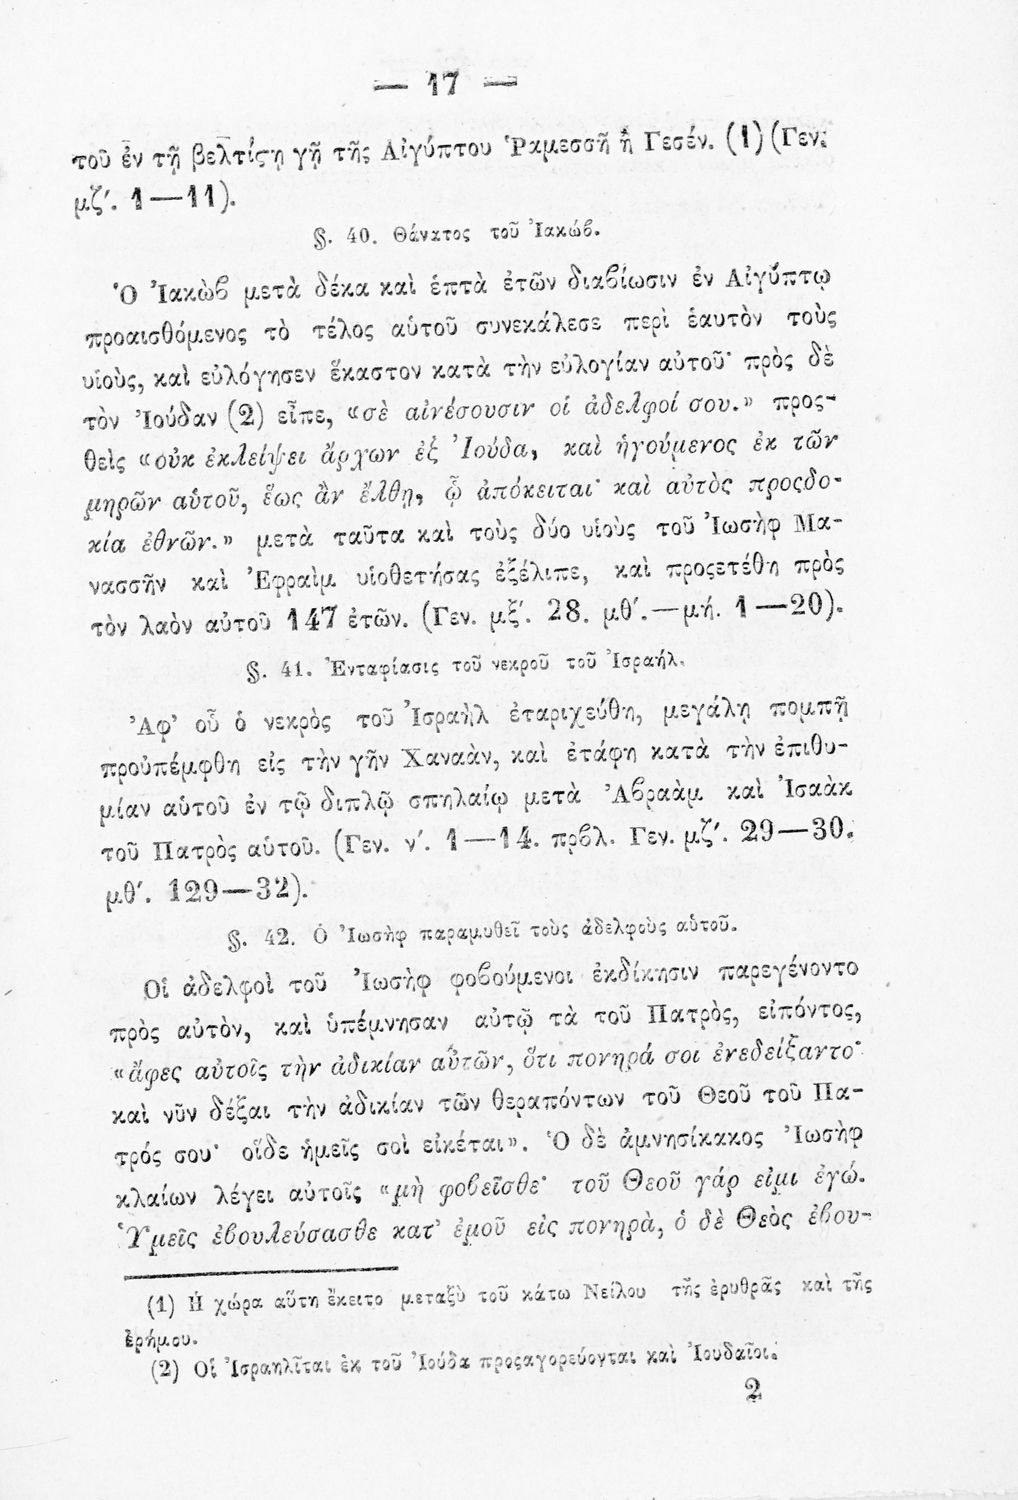 — 17 —
τοῦ ἐν τῇ βελτίςῃ γῇ τῆς Αἰγύπτου Ῥαμεσσῆ ἢ Γεσέν. (1) (Γεν.
μζ΄. 1—11).
§. 40. Θάνατος τοῦ Ἰακώβ.
Ὁ Ἰακὼβ μετὰ δέκα καὶ ἑπτὰ ἐτῶν διαβίωσιν ἐν Αἰγύπτῳ
προαισθόμενος τὸ τέλος αὑτοῦ συνεκάλεσε περὶ ἑαυτὸν τοὺς
υἱοὺς, καὶ εὐλόγησεν ἕκαστον κατὰ τὴν εὐλογίαν αὐτοῦ· πρὸς δὲ
τὸν Ἰούδαν (2) εἶπε, «σὲ αἰνέσουσιν οἱ ἀδελφοί σου.» προς-
θεὶς «οὐκ ἐκλείψει ἄρχων ἐξ Ἰούδα, καὶ ἡγούμενος ἐκ τῶν
μηρῶν αὑτοῦ, ἕως ἂν ἔλθῃ, ᾧ ἀπόκειται· καὶ αὐτὸς προςδο-
κία ἐθνῶν.» μετὰ ταῦτα καὶ τοὺς δύο υἱοὺς τοῦ Ἰωσὴφ Μα-
νασσῆν καὶ Ἐφραὶμ υἱοθετήσας ἐξέλιπε, καὶ προςετέθη πρὸς
τὸν λαὸν αὑτοῦ 147 ἐτῶν. (Γεν. μξ΄. 28. μθ΄.—μή. 1—20).
§. 41. Ἐνταφίασις τοῦ νεκροῦ τοῦ Ἰσραήλ.
Ἀφ' οὗ ὁ νεκρὸς τοῦ Ἰσραὴλ ἐταριχεύθη, μεγάλῃ πομπῇ
προὐπέμφθη εἰς τὴν γῆν Χαναὰν, καὶ ἐτάφη κατὰ τὴν ἐπιθυ-
μίαν αὑτοῦ ἐν τῷ διπλῷ σπηλαίῳ μετὰ Ἀβραὰμ καὶ Ἰσαὰκ
τοῦ Πατρὸς αὑτοῦ. (Γεν. ν΄. 1—14. πρβλ. Γεν. μζ΄. 29—30.
μθ΄. 129—32).
§. 42. Ὁ Ἰωσὴφ παραμυθεῖ τοὺς ἀδελφοὺς αὑτοῦ.
Οἱ ἀδελφοὶ τοῦ Ἰωσὴφ φοβούμενοι ἐκδίκησιν παρεγένοντο
πρὸς αὐτὸν, καὶ ὑπέμνησαν αὐτῷ τὰ τοῦ Πατρὸς, εἰπόντος,
«ἄφες αὐτοῖς τὴν ἀδικίαν αὐτῶν, ὅτι πονηρά σοι ἐνεδείξαντο·
καὶ νῦν δέξαι τὴν ἀδικίαν τῶν θεραπόντων τοῦ Θεοῦ τοῦ Πα-
τρός σου· οἵδε ἡμεῖς σοὶ εἰκέται». Ὁ δὲ ἀμνησίκακος Ἰωσὴφ
κλαίων λέγει αὐτοῖς «μὴ φοβεῖσθε· τοῦ Θεοῦ γάρ εἰμι ἐγώ.
Ὑμεῖς ἐβουλεύσασθε κατ' ἐμοῦ εἰς πονηρὰ, ὁ δὲ Θεὸς ἐβου-
(1) Ἡ χώρα αὕτη ἔκειτο μεταξὺ τοῦ κάτω Νείλου τῆς ἐρυθρᾶς καὶ τῆς
ἐρήμου.
(2) Οἱ Ἰσραηλῖται ἐκ τοῦ Ἰούδα προςαγορεύονται καὶ Ἰουδαῖοι.
2